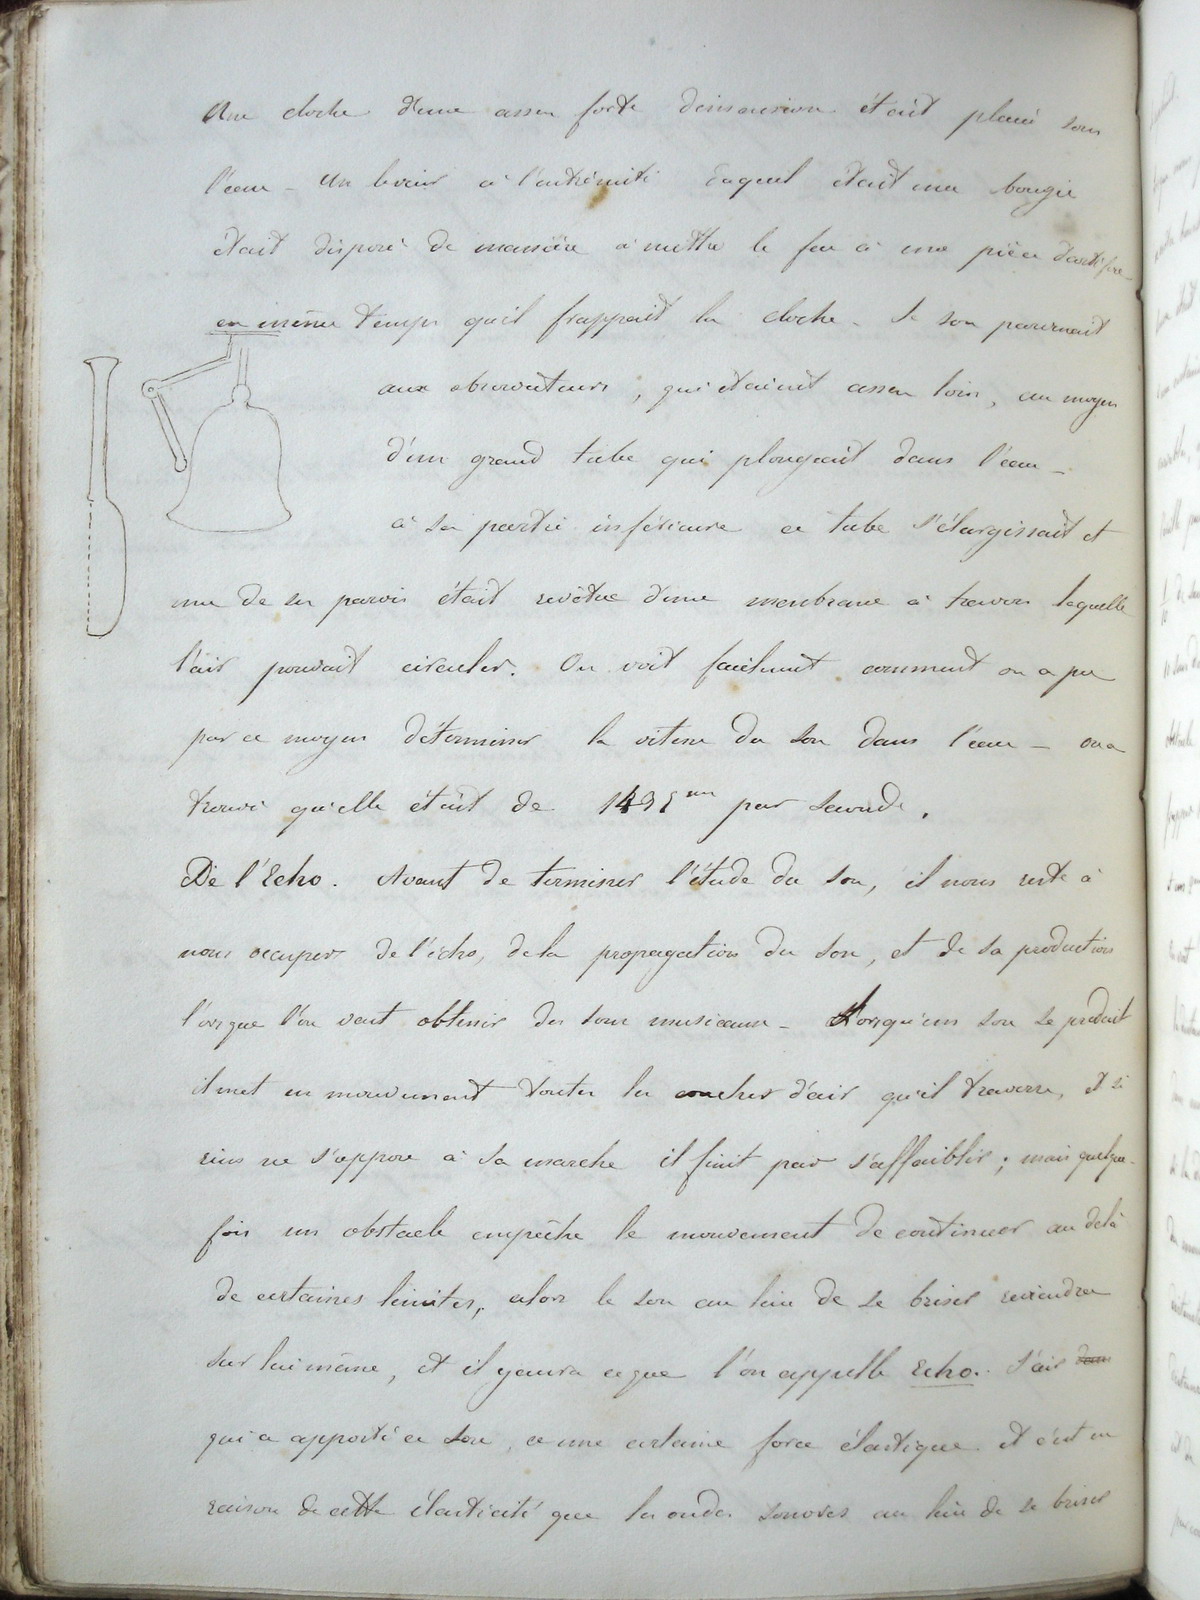 Une cloche d'une assez forte dimension était placée sous
l'eau - un levier à l'extrémité duquel était une bougie
était disposé de manière à mettre le feu à une pièce d'artifice
en même temps qu'il frappait la cloche. Le son parvenait
aux observateurs, qui étaient assez loin, au moyen
d'un grand tube qui plongeait dans l'eau -
à sa partie inférieure ce tube s'élargissait et
une de ses parois était revêtue d'une membrane à travers laquelle
l'air pouvait circuler. On voit facilement comment on a pu
par ce moyen déterminer la vitesse du son dans l'eau - on a
trouvé qu'elle était de 1435 m par seconde.
De l'Echo. Avant de terminer l'étude du son, il nous reste à
nous occuper de l'écho, de la propagation du son, et de sa production
lorsque l'on veut obtenir des sons musicaux - Lorsqu'un son se produit
il met en mouvement toutes les couches d'air qu'il traverse, et si
rien ne s'oppose à sa marche il finit par s'affaiblir; mais quelque-
fois un obstacle empêche le mouvement de continuer au delà
de certaines limites, alors le son au lieu de se briser reviendra
sur lui même, et il y aura ce que l'on appelle Echo. L'air
qui a apporté ce son, a une certaine force élastique et c'est en
raison de cette élasticité que les ondes sonores au lieu de se briser